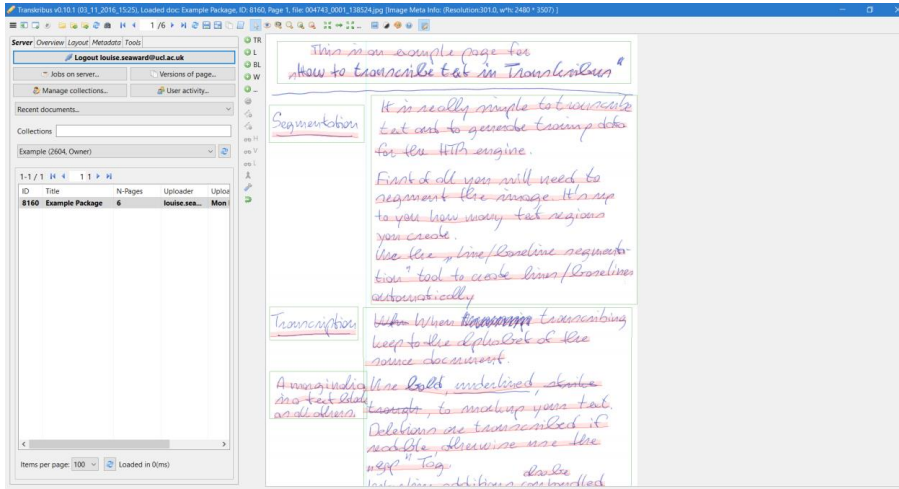 Transkribus v0.10.1 (03_11_2016_15:25), Loaded doc: Example Package, ID: 8160, Page 1, file: 004743_0001_138524.jpg [Image Meta Info: (Resolution:301.0, w*h: 2480 * 3507) ]
1 /6
Server Overview Layout Metadata Tools
Logout louise.seaward@ucl.ac.uk
Jobs on server...
Versions of page...
Manage collections...
User activity...
Recent documents...
Collections
Example (2604, Owner)
1-1 / 1 1 1
ID Title N-Pages Uploader Uploa
8160 Example Package 6 louise.sea... Mon
Items per page: 100 Loaded in 0(ms)
TR
L
BL
W
...
H
V
This is an example page for
"How to transcribe text in Transkribus"
Segmentation
It is really simple to transcribe
text and to generate training data
for the HTR engine.
First of all you will need to
segment the image. It's up
to you how many text regions
you create.
Use the "line/baseline segmenta-
tion" tool to create lines/baselines
automatically
Transcription
When When transcribing
keep to the alphabet of the
source document.
A marginalia
is a text block
as all others.
Use bold, underlined, strike
trough, to markup your text.
Deletions are transcribed if
readable, otherwise use the
"gap" Tag
also be
additions can handled